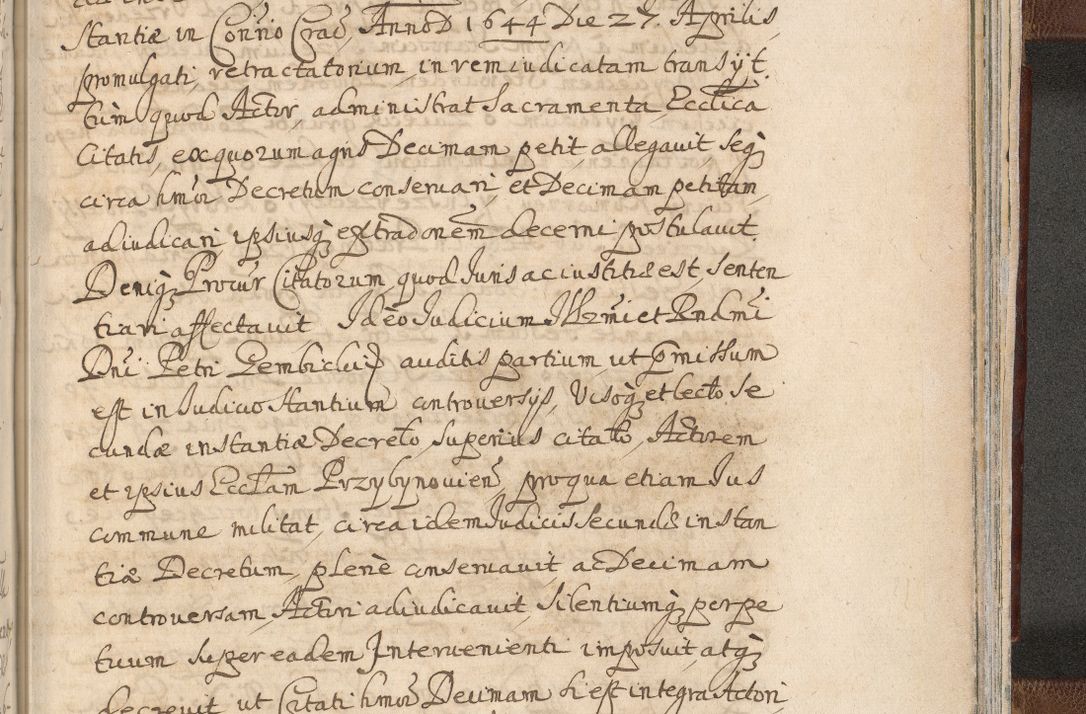 stantiæ in Conño Crac̃ Anno D 1644 Die 27. Aprilis
promulgati, retractatorium, in rem iudicatam transÿt.
tùm quod Actor, administrat Sacramenta Eccl̃ica
Citatis, ex quorum agris Decimam petit, allegavit, seq₃
circa hmõi Decretum conservari, et Decimam petitam,
adiudicari ipsiusq₃ extradoñem decerni postulavit.
Deniq₃ Procur̃ Citatorum, quod Iuris ac iustitiæ est, senten
tiari affectavit. Ideo Iudicium Illr̃mi et Rndmi
Dñi Petri Gembicki, auditis partium, ut p̃missum
est in Iudicio stantium controversÿs, Visoq₃ et lecto Se
cundæ instantiæ Decreto, superius citato, Actorem
et ipsius Eccl̃am Przybynovien̄, pro qua etiam Ius
commune militat, circa idem Iudicis secundæ instan
tiæ Decretum, plenè conservavit, ac Decimam
controversam Actori adiudicavit, silentiumq₃ perpe
tuum super eadem Intervenienti imposuit, atq₃
decrevit ut Citati hmõi Decimam si est integra Actori